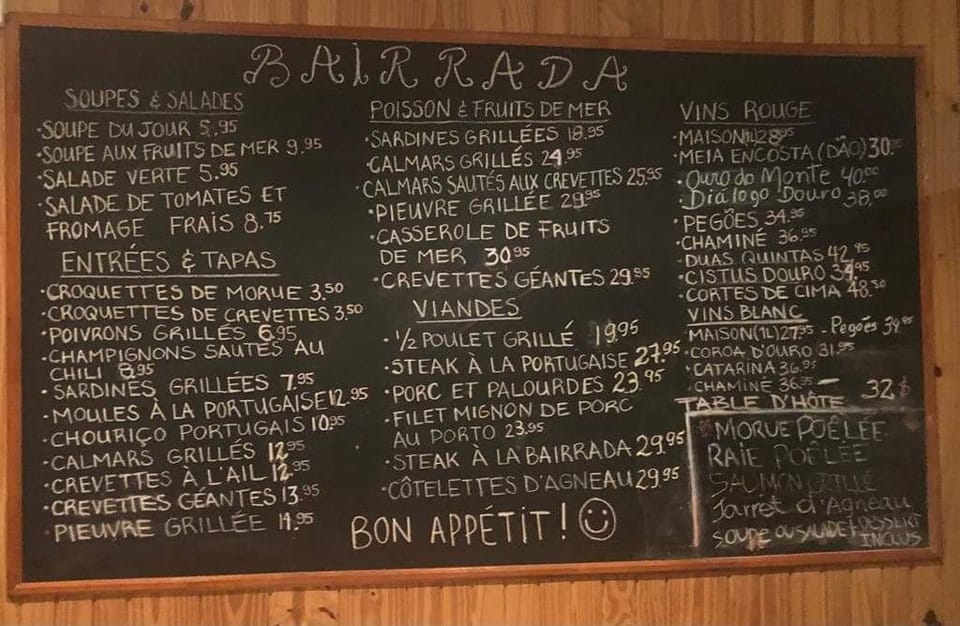 BAIRRADA
SOUPES & SALADES
·SOUPE DU JOUR 5.95
·SOUPE AUX FRUITS DE MER 9.95
·SALADE VERTE 5.95
·SALADE DE TOMATES ET
FROMAGE FRAIS 8.75
ENTRÉES & TAPAS
·CROQUETTES DE MORUE 3.50
·CROQUETTES DE CREVETTES 3.50
·POIVRONS GRILLÉS 6.95
·CHAMPIGNONS SAUTÉS AU
CHILI 8.95
·SARDINES GRILLÉES 7.95
·MOULES À LA PORTUGAISE 12.95
·CHOURIÇO PORTUGAIS 10.95
·CALMARS GRILLÉS 12.95
·CREVETTES À L'AIL 12.95
·CREVETTES GÉANTES 13.95
·PIEUVRE GRILLÉE 14.95
POISSON & FRUITS DE MER
·SARDINES GRILLÉES 18.95
·CALMARS GRILLÉS 24.95
·CALMARS SAUTÉS AUX CREVETTES 25.95
·PIEUVRE GRILLÉE 29.95
·CASSEROLE DE FRUITS
DE MER 30.95
·CREVETTES GÉANTES 29.95
VIANDES
·1/2 POULET GRILLÉ 19.95
·STEAK À LA PORTUGAISE 27.95
·PORC ET PALOURDES 23.95
·FILET MIGNON DE PORC
AU PORTO 23.95
·STEAK À LA BAIRRADA 29.95
·CÔTELETTES D'AGNEAU 29.95
BON APPÉTIT!
VINS ROUGE
·MAISON(1L) 28.95
·MEIA ENCOSTA (DÃO) 30.95
·Ouro do Monte 40.00
·Diálogo Douro 38.00
·PEGÕES 34.95
·CHAMINÉ 36.95
·DUAS QUINTAS 42.95
·CISTUS DOURO 34.95
·CORTES DE CIMA 48.50
VINS BLANC
·MAISON(1L) 27.95 - Pegões 34.95
·COROA D'OURO 31.95
·CATARINA 36.95
·CHAMINÉ 36.95
TABLE D'HÔTE 32$
MORUE POÊLÉE
RAIE POÊLÉE
SAUMON GRILLÉ
Jarret d'Agneau
SOUPE OU SALADE + DESSERT
INCLUS